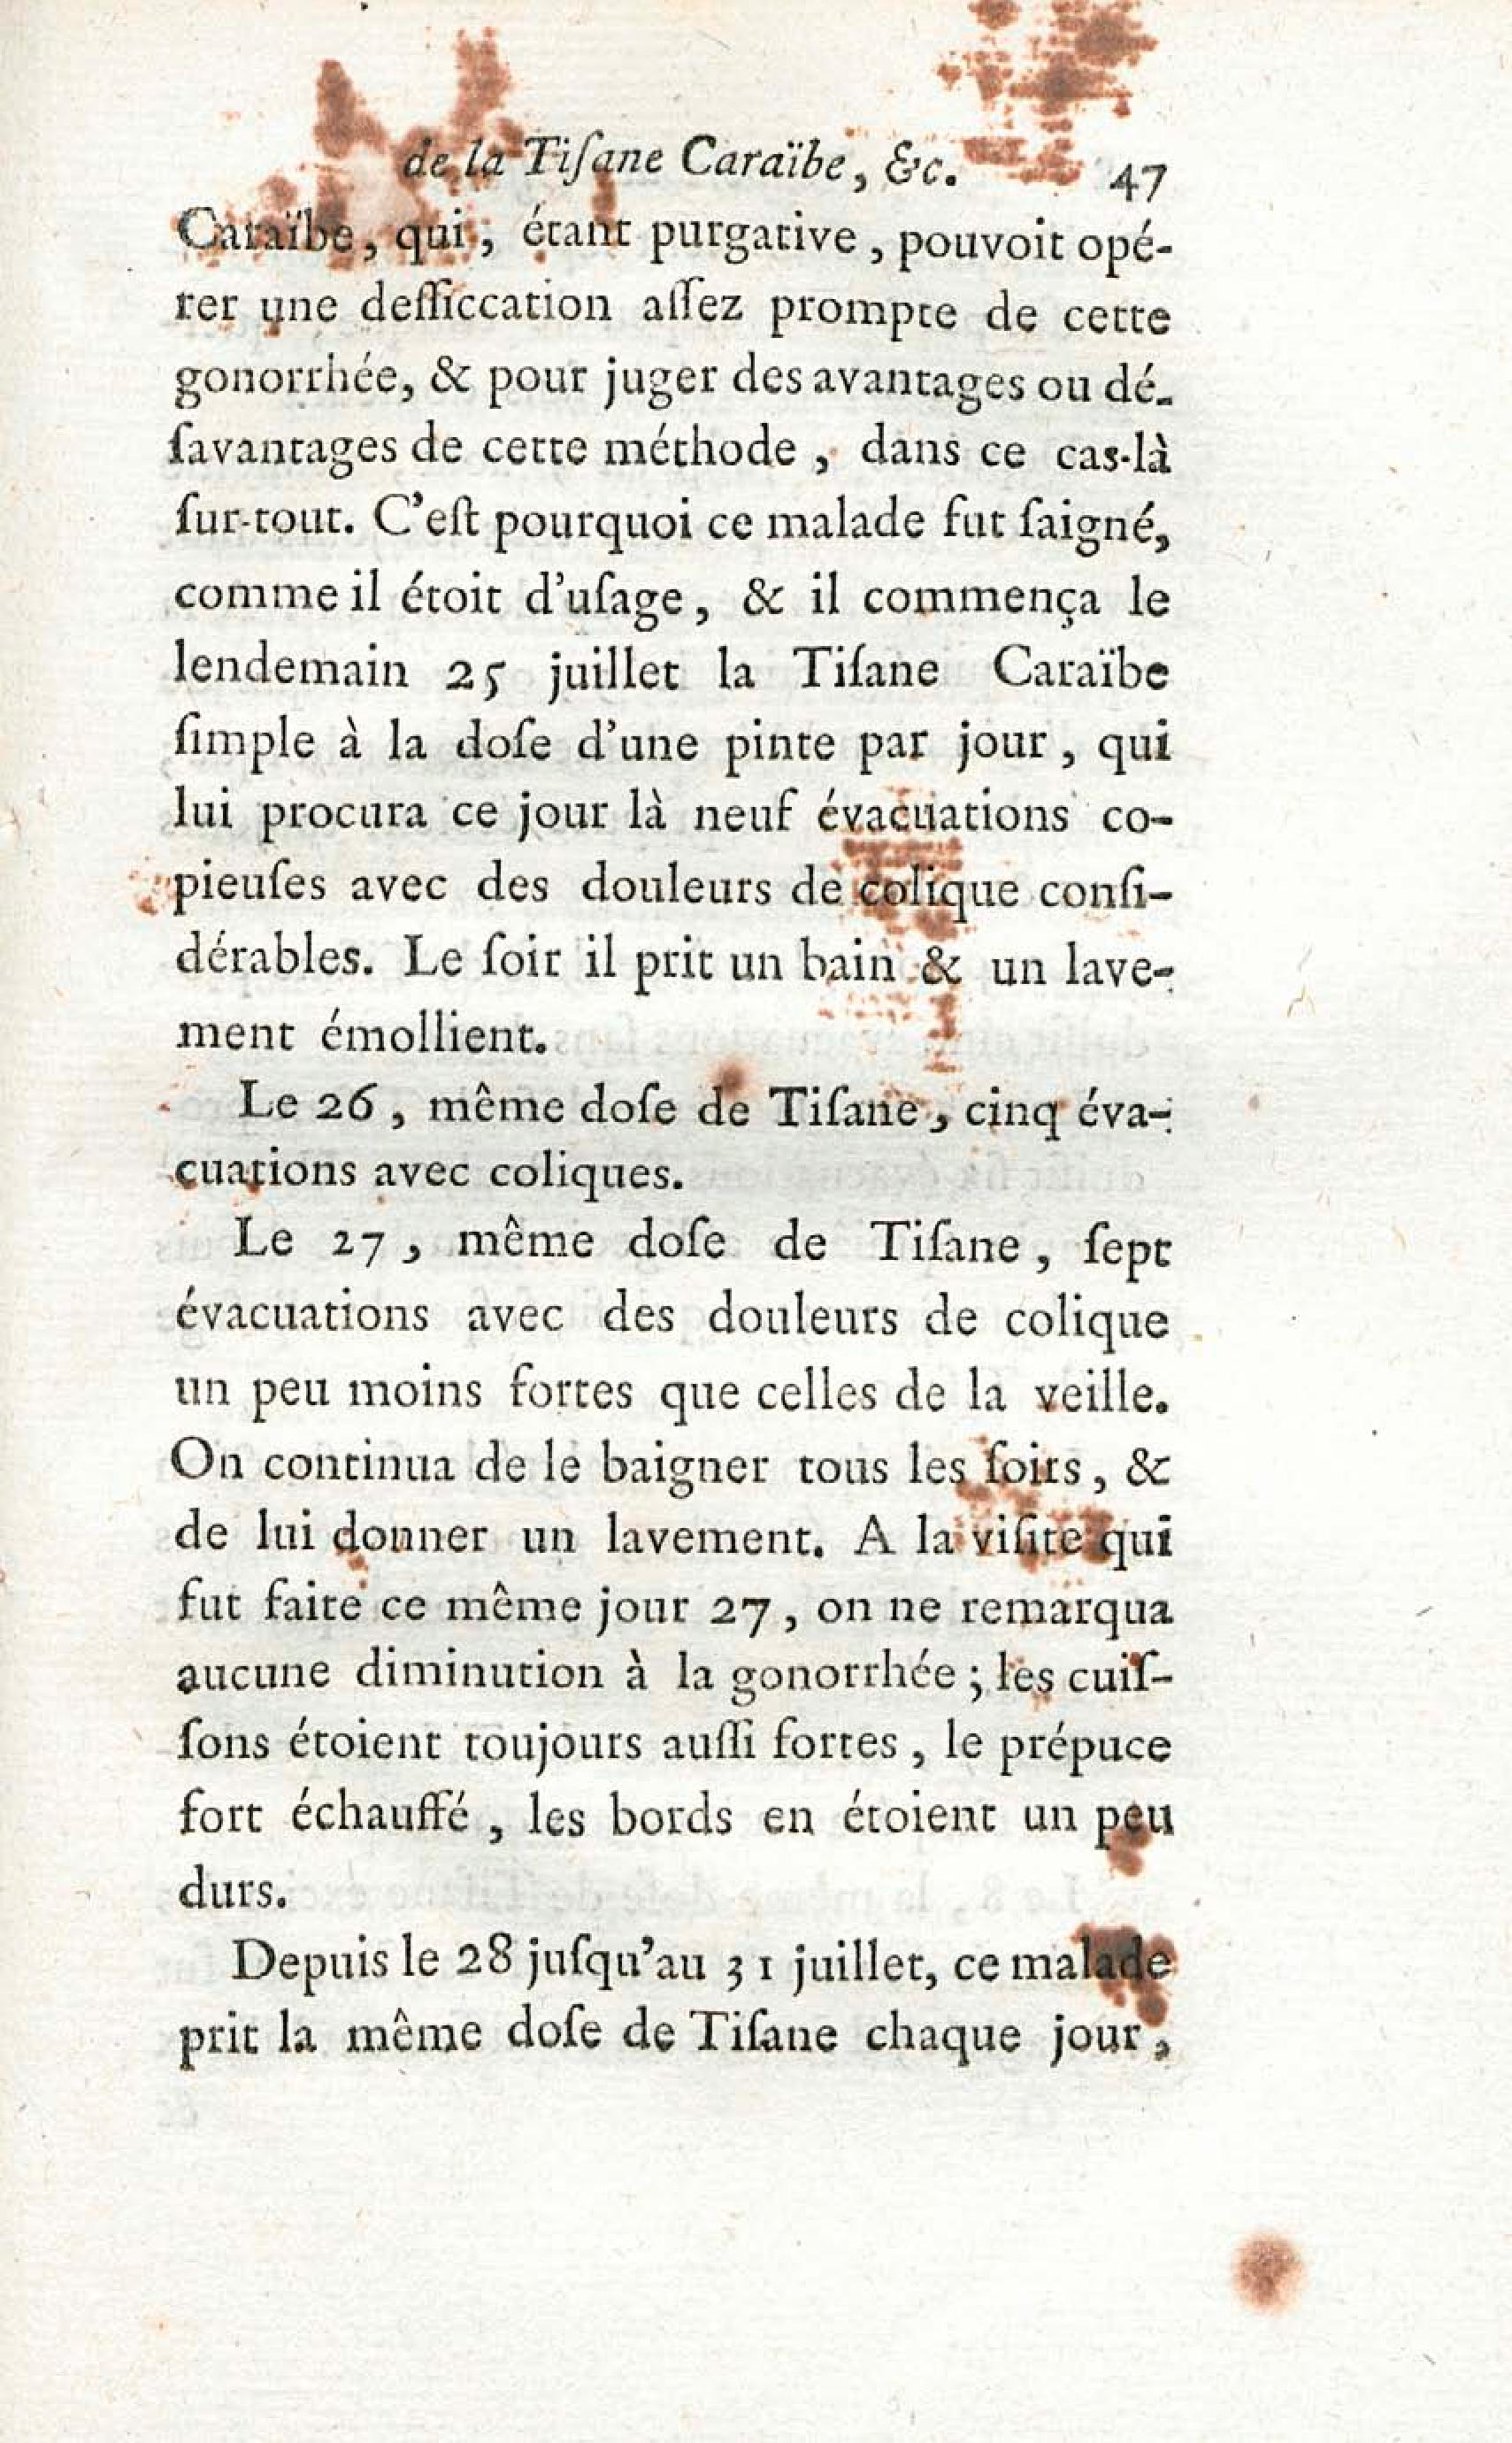 de la Tiſane Caraïbe, &c. 47
Caraïbe, qui, étant purgative, pouvoit opé-
rer une deſſiccation aſſez prompte de cette
gonorrhée, & pour juger des avantages ou dé-
ſavantages de cette méthode, dans ce cas-là
ſur-tout. C'eſt pourquoi ce malade fut ſaigné,
comme il étoit d'uſage, & il commença le
lendemain 25 juillet la Tiſane Caraïbe
ſimple à la doſe d'une pinte par jour, qui
lui procura ce jour là neuf évacuations co-
pieuſes avec des douleurs de colique conſi-
dérables. Le ſoir il prit un bain & un lave-
ment émollient.
Le 26, même doſe de Tiſane, cinq éva-
cuations avec coliques.
Le 27, même doſe de Tiſane, ſept
évacuations avec des douleurs de colique
un peu moins fortes que celles de la veille.
On continua de le baigner tous les ſoirs, &
de lui donner un lavement. A la viſite qui
fut faite ce même jour 27, on ne remarqua
aucune diminution à la gonorrhée; les cuiſ-
ſons étoient toujours auſſi fortes, le prépuce
fort échauffé, les bords en étoient un peu
durs.
Depuis le 28 juſqu'au 31 juillet, ce malade
prit la même doſe de Tiſane chaque jour,